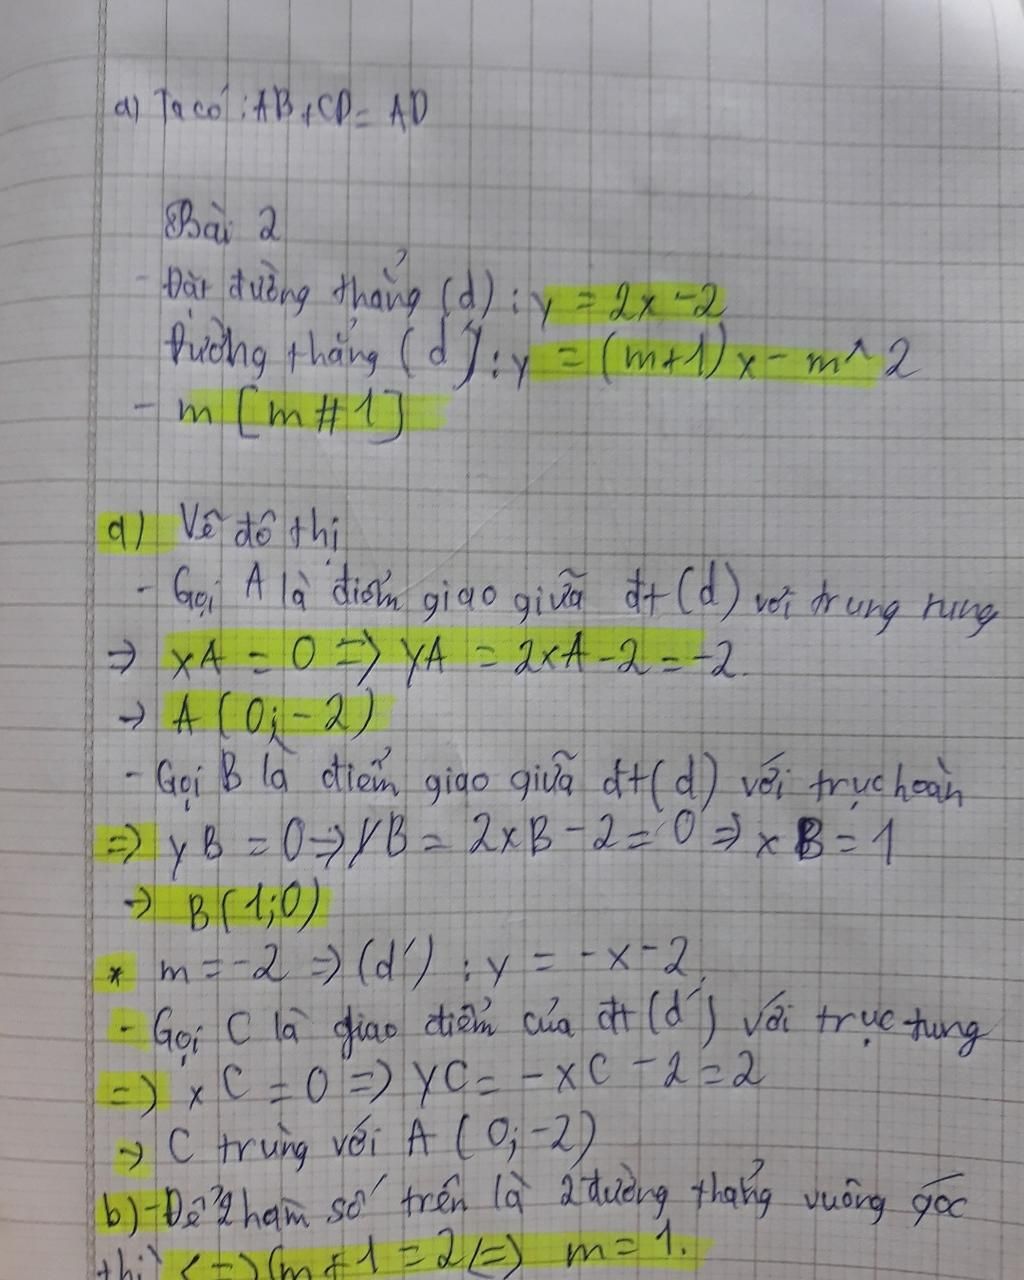 a) Ta có : AB + CD = AD
Bài 2
- Đặt đường thẳng (d) : y = 2x - 2
Đường thẳng (d') : y = (m+1) x - m ^ 2
- m [m # 1]
a) Vẽ đồ thị
- Gọi A là điểm giao giữa đt (d) với trung tung
=> xA = 0 => yA = 2xA - 2 = -2.
-> A (0; -2)
- Gọi B là điểm giao giữa đt (d) với trục hoàn
=> yB = 0 => yB = 2xB - 2 = 0 => xB = 1
-> B (1; 0)
* m = -2 => (d') : y = -x - 2
- Gọi C là giao điểm của đt (d') với trục tung
=> xC = 0 => yC = -xC - 2 = 2
=> C trùng với A (0; -2)
b) - Để 2 hàm số trên là 2 đường thẳng vuông góc
thì <=> (m + 1 = 2 (=) m = 1.